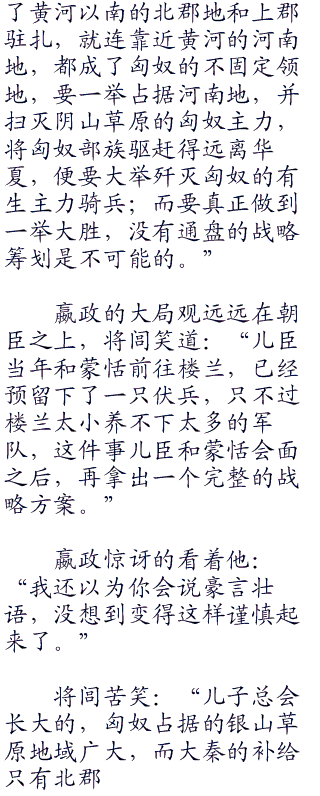 了黄河以南的北郡地和上郡
驻扎，就连靠近黄河的河南
地，都成了匈奴的不固定领
地，要一举占据河南地，并
扫灭阴山草原的匈奴主力，
将匈奴部族驱赶得远离华
夏，便要大举歼灭匈奴的有
生主力骑兵；而要真正做到
一举大胜，没有通盘的战略
筹划是不可能的。”
嬴政的大局观远远在朝
臣之上，将闾笑道：“儿臣
当年和蒙恬前往楼兰，已经
预留下了一只伏兵，只不过
楼兰太小养不下太多的军
队，这件事儿臣和蒙恬会面
之后，再拿出一个完整的战
略方案。”
嬴政惊讶的看着他：
“我还以为你会说豪言壮
语，没想到变得这样谨慎起
来了。”
将闾苦笑：“儿子总会
长大的，匈奴占据的银山草
原地域广大，而大秦的补给
只有北郡